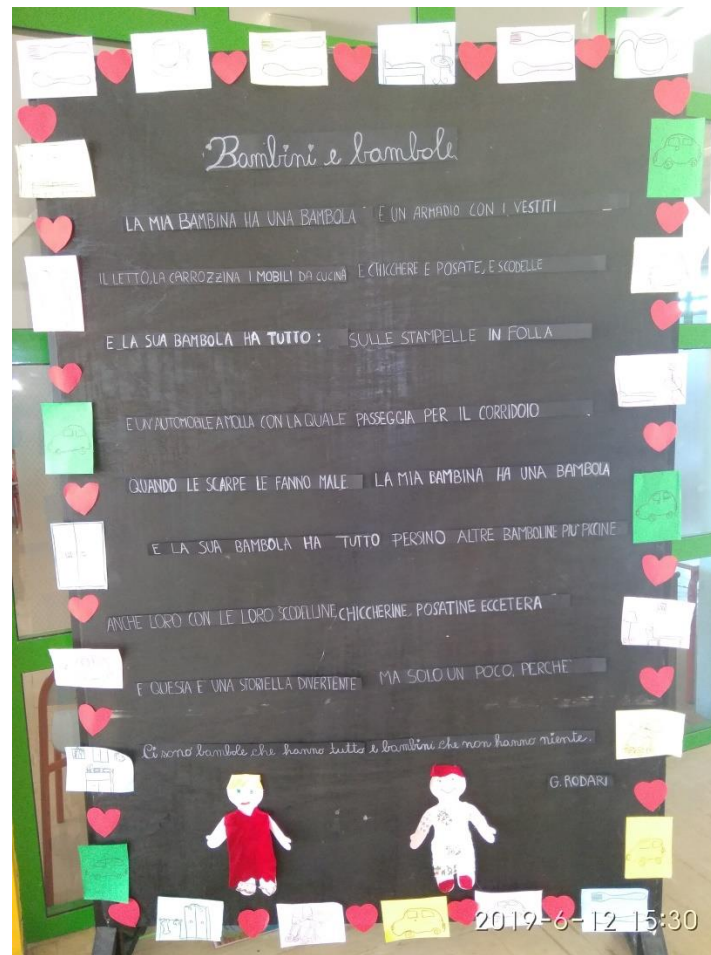 Bambini e bambole
LA MIA BAMBINA HA UNA BAMBOLA E UN ARMADIO CON I VESTITI
IL LETTO, LA CARROZZINA I MOBILI DA CUCINA E CHICCHERE E POSATE, E SCODELLE
E LA SUA BAMBOLA HA TUTTO: SULLE STAMPELLE IN FOLLA
E UN'AUTOMOBILE A MOLLA CON LA QUALE PASSEGGIA PER IL CORRIDOIO
QUANDO LE SCARPE LE FANNO MALE LA MIA BAMBINA HA UNA BAMBOLA
E LA SUA BAMBOLA HA TUTTO PERSINO ALTRE BAMBOLINE PIU' PICCINE
ANCHE LORO CON LE LORO SCODELLINE, CHICCHERINE, POSATINE ECCETERA
E QUESTA E' UNA STORIELLA DIVERTENTE MA SOLO UN POCO, PERCHE'
Ci sono bambole che hanno tutto e bambini che non hanno niente.
G. RODARI
2019-6-12 15:30